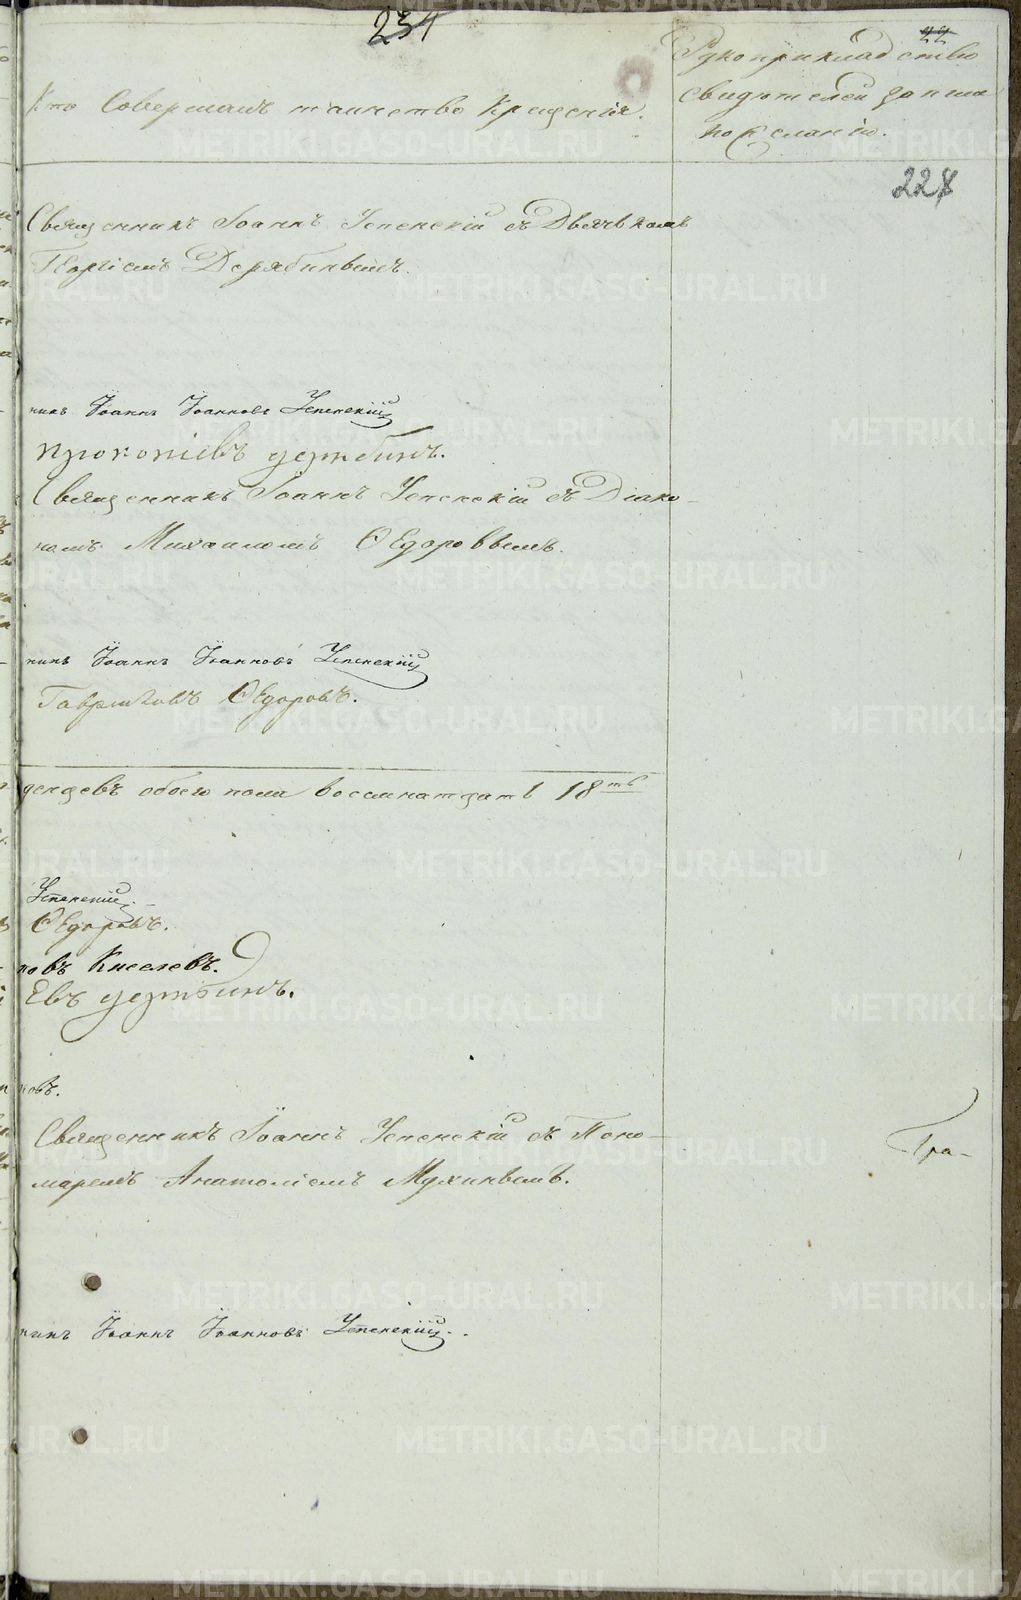 231
22
Кто Совершалъ таинство Крещенія.
Рукоприкладство
свидѣтелей записи
по желанію.
228
Священникъ Іоаннъ Успенскій съ Дьячкомъ
Георгіемъ Дерябинымъ.
никъ Іоаннъ Іоанновъ Успенскій
Прокопіевъ Дерябинъ.
Священникъ Іоаннъ Успенскій съ Діако-
номъ Михаиломъ Ѳедоровымъ.
никъ Іоаннъ Іоанновъ Успенскій
Гавриловъ Ѳедоровъ.
денцевъ обоего пола восемнатцать 18ть
Успенскій.
Ѳедоровъ.
новъ Киселевъ.
евъ Дерябинъ.
новъ.
Священникъ Іоаннъ Успенскій съ Поно-
маремъ Анатоліемъ Мухинымъ.
Гра-
никъ Іоаннъ Іоанновъ Успенскій.
METRIKI.GASO-URAL.RU